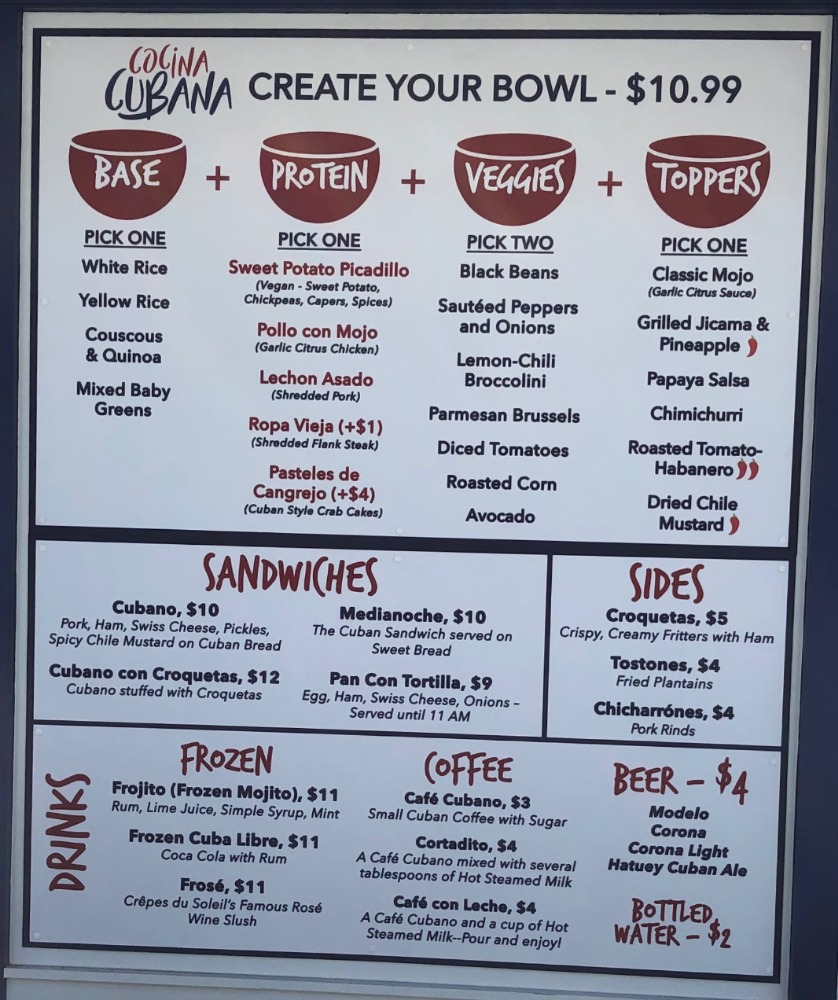 COCINA
CUBANA
CREATE YOUR BOWL - $10.99
BASE
+
PROTEIN
+
VEGGIES
+
TOPPERS
PICK ONE
White Rice
Yellow Rice
Couscous
& Quinoa
Mixed Baby
Greens
PICK ONE
Sweet Potato Picadillo
(Vegan - Sweet Potato,
Chickpeas, Capers, Spices)
Pollo con Mojo
(Garlic Citrus Chicken)
Lechon Asado
(Shredded Pork)
Ropa Vieja (+$1)
(Shredded Flank Steak)
Pasteles de
Cangrejo (+$4)
(Cuban Style Crab Cakes)
PICK TWO
Black Beans
Sautéed Peppers
and Onions
Lemon-Chili
Broccolini
Parmesan Brussels
Diced Tomatoes
Roasted Corn
Avocado
PICK ONE
Classic Mojo
(Garlic Citrus Sauce)
Grilled Jicama &
Pineapple
Papaya Salsa
Chimichurri
Roasted Tomato-
Habanero
Dried Chile
Mustard
SANDWICHES
Cubano, $10
Pork, Ham, Swiss Cheese, Pickles,
Spicy Chile Mustard on Cuban Bread
Cubano con Croquetas, $12
Cubano stuffed with Croquetas
Medianoche, $10
The Cuban Sandwich served on
Sweet Bread
Pan Con Tortilla, $9
Egg, Ham, Swiss Cheese, Onions -
Served until 11 AM
SIDES
Croquetas, $5
Crispy, Creamy Fritters with Ham
Tostones, $4
Fried Plantains
Chicharrónes, $4
Pork Rinds
DRINKS
FROZEN
Frojito (Frozen Mojito), $11
Rum, Lime Juice, Simple Syrup, Mint
Frozen Cuba Libre, $11
Coca Cola with Rum
Frosé, $11
Crêpes du Soleil's Famous Rosé
Wine Slush
COFFEE
Café Cubano, $3
Small Cuban Coffee with Sugar
Cortadito, $4
A Café Cubano mixed with several
tablespoons of Hot Steamed Milk
Café con Leche, $4
A Café Cubano and a cup of Hot
Steamed Milk--Pour and enjoy!
BEER - $4
Modelo
Corona
Corona Light
Hatuey Cuban Ale
BOTTLED
WATER - $2